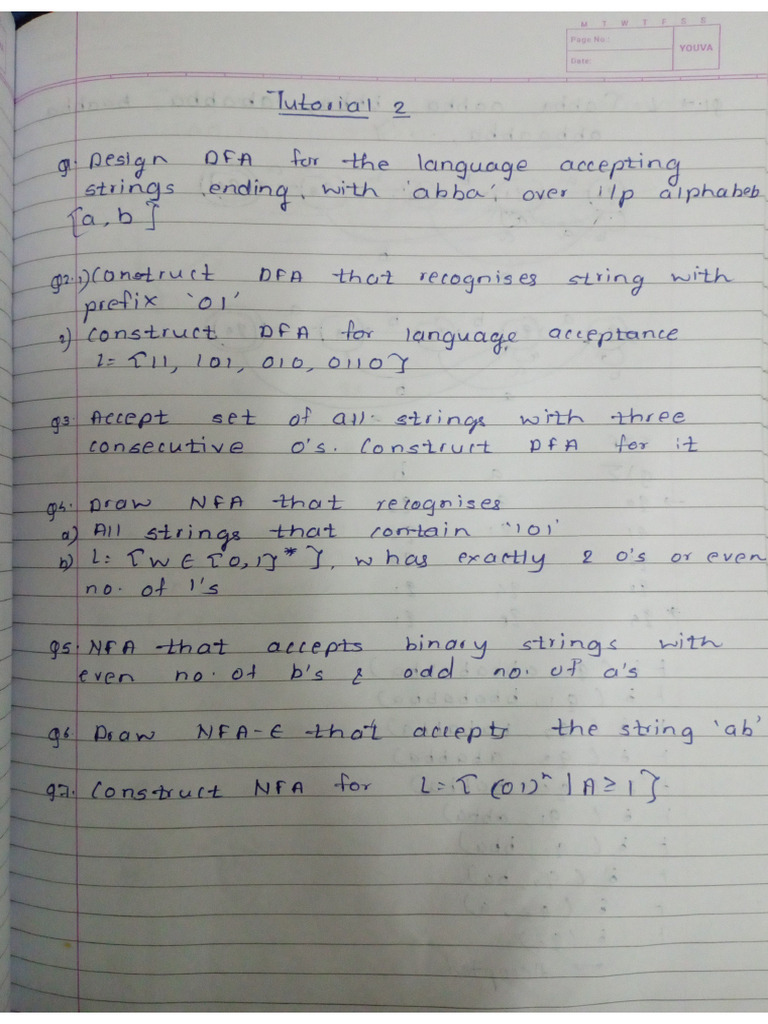 M T W T F S S
Page No.:
YOUVA
Date:
Tutorial 2
Q1. Design DFA for the language accepting
strings ending with 'abba' over i/p alphabeb
[a, b]
Q2. 1) Construct DFA that recognises string with
prefix '01'
2) Construct DFA for language acceptance
L= {11, 101, 010, 0110}
Q3. Accept set of all strings with three
consecutive 0's. Construct DFA for it
Q4. Draw NFA that recognises
a) All strings that contain '101'
b) L= {W ∈ {0,1}*}, w has exactly 2 0's or even
no. of 1's
Q5. NFA that accepts binary strings with
even no. of b's & odd no. of a's
Q6. Draw NFA-ε that accepts the string 'ab'
Q7. Construct NFA for L= {(01)ⁿ | A ≥ 1}